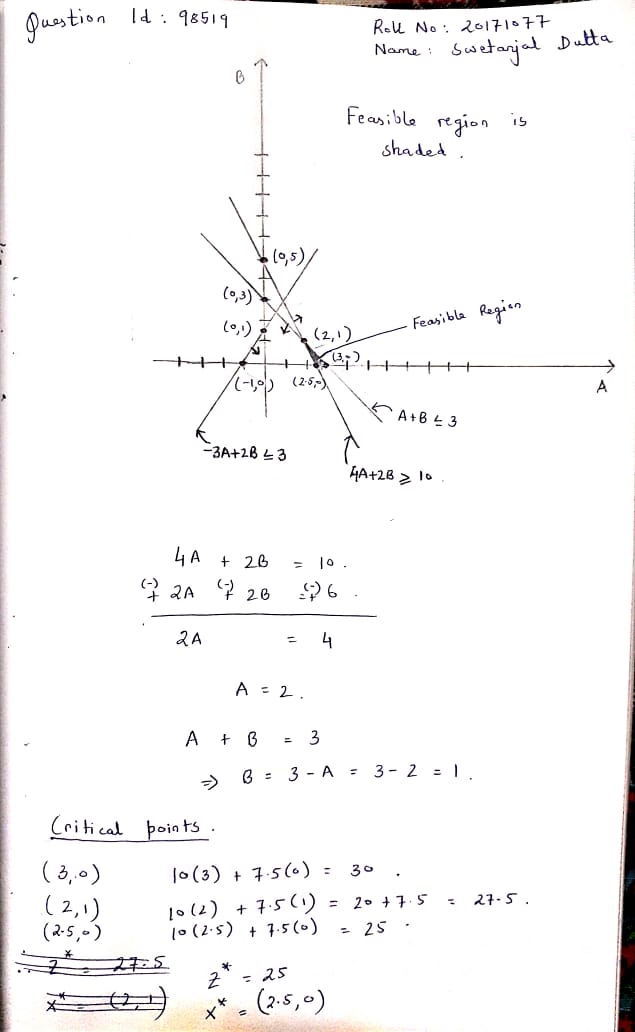 Question Id : 98519
Roll No : 20171077
Name : Swetanjal Dutta
B
Feasible region is
shaded .
(0,5)
(0,3)
(0,1)
(2,1)
Feasible Region
(3,0)
(-1,0)
(2.5,0)
A
A+B ≤ 3
-3A+2B ≤ 3
4A+2B ≥ 10 .
4A + 2B = 10 .
(-) (-) (-)
+ 2A + 2B = + 6 .
2A = 4
A = 2 .
A + B = 3
⇒ B = 3 - A = 3 - 2 = 1 .
Critical points .
(3,0) 10(3) + 7.5(0) = 30 .
(2,1) 10(2) + 7.5(1) = 20 + 7.5 = 27.5 .
(2.5,0) 10(2.5) + 7.5(0) = 25 .
z* = 27.5
x* = (2,1)
z* = 25
x* = (2.5,0)